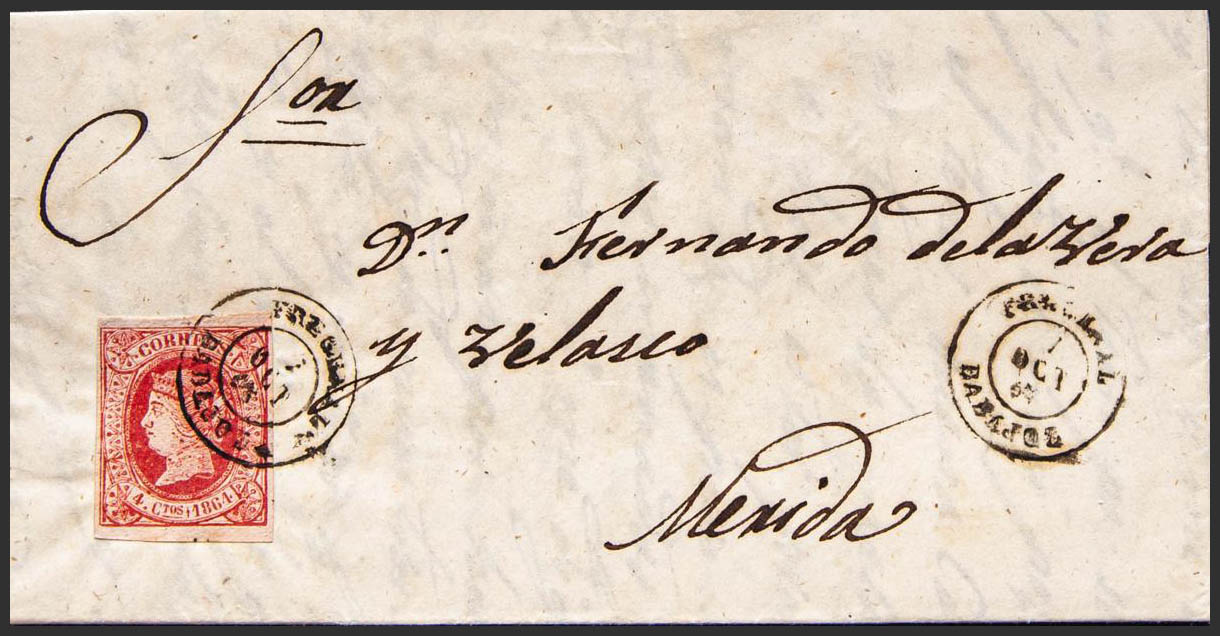 Sor
Dn. Fernando de la Vera
y Velasco
Merida
CORREOS
4. CTOS 1864
FREGENAL
OCT
BADAJOZ
FREGENAL
1
OCT
64
BADAJOZ